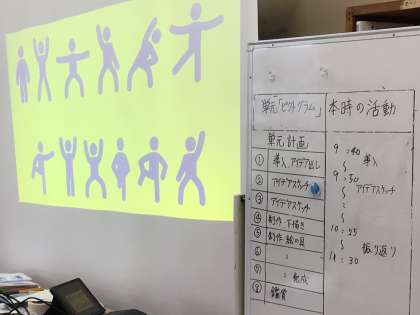 単元「ピクトグラム」
単元計画
① 導入、アイデア出し
② アイデアスケッチ
③ アイデアスケッチ
④ 制作 下描き
⑤ 制作 絵の具
⑥ 〃
⑦ 〃 完成
⑧ 鑑賞
本時の活動
9:40
〜 導入
9:50
〜 アイデアスケッチ
10:25
〜 振り返り